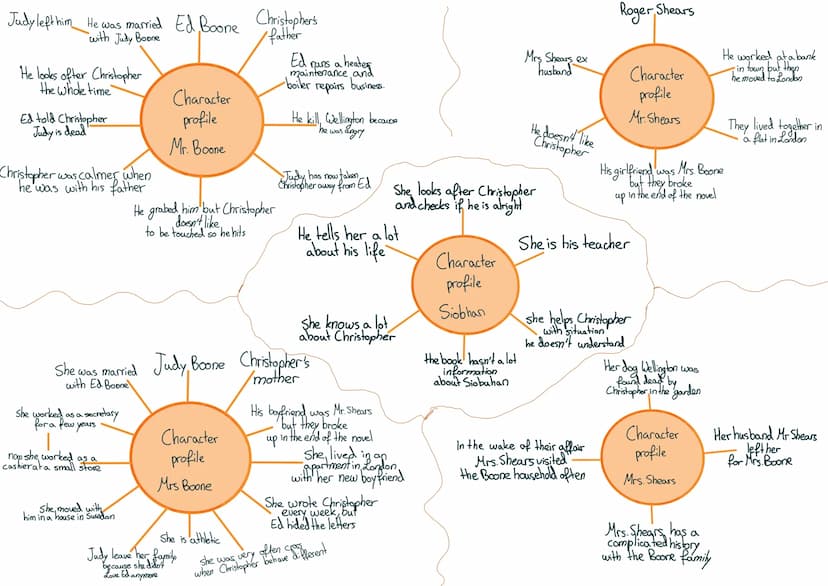 Judy left him
He was married
with Judy Boone
Ed Boone
Christopher's
father
He looks after Christopher
the whole time
Ed runs a heater
maintenance and
boiler repairs business
Ed told Christopher
Judy is dead
He kill Wellington because
he was angry
Christopher was calmer when
he was with his father
Judy has now taken
Christopher away from Ed
He grabed him but Christopher
doesn't like
to be touched so he hits
Character
profile
Mr. Boone
Roger Shears
Mrs Shears ex
husband
He worked at a bank
in town but then
he moved to London
He doesn't like
Christopher
They lived together in
a flat in London
His girlfriend was Mrs Boone
but they broke
up in the end of the novel
Character
profile
Mr. Shears
She looks after Christopher
and checks if he is alright
He tells her a lot
about his life
She is his teacher
She knows a lot
about Christopher
She helps Christopher
with situation
he doesn't understand
the book hasn't a lot
information
about Siobuhan
Character
profile
Siobhan
She was married
with Ed Boone
Judy Boone
Christopher's
mother
She worked as a secretary
for a few years
His boyfriend was Mr. Shears
but they broke
up in the end of the novel
now she worked as a
cashier at a small store
She lived in an
apartment in London
with her new boyfriend
She moved with
him in a house in Swindon
She wrote Christopher
every week but
Ed hided the letters
She is athletic
Judy leave her family
because she didn't
love Ed anymore
She was very often cross
when Christopher behave different
Character
profile
Mrs Boone
Her dog Wellington was
found dead by
Christopher in the garden
In the wake of their affair
Mrs. Shears visited
the Boone household often
Her husband Mr Shears
left her
for Mrs Boone
Mrs. Shears has a
complicated history
with the Boone family
Character
profile
Mrs. Shears